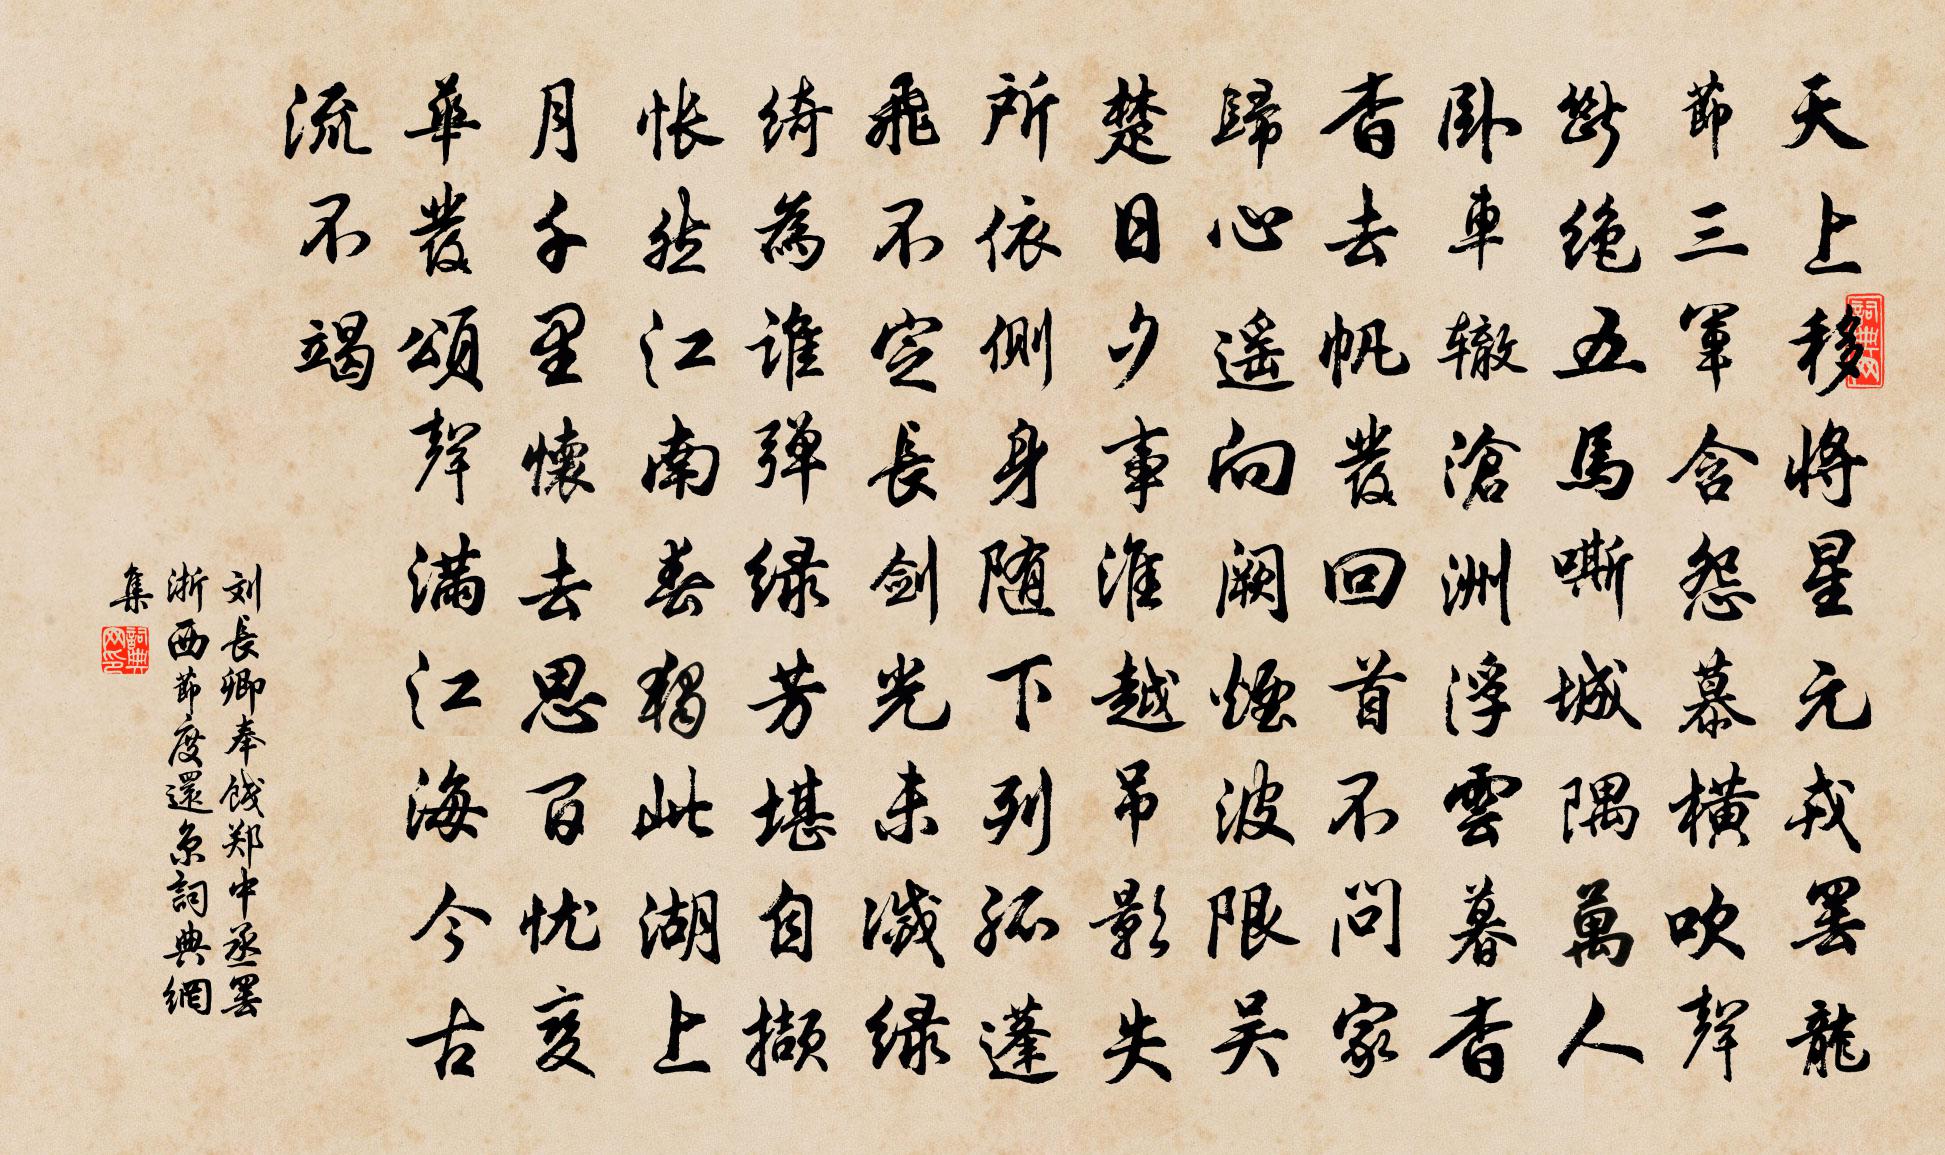 天上移將星元戎罷龍
節三軍含怨慕橫吹聲
斷絕五馬嘶城隅萬人
卧車辙滄洲浮雲暮杳
杳去帆發回首不問家
歸心遥向闕煙波限吴
楚日夕事淮越吊影失
所依側身随下列孤蓬
飛不定長劍光未滅绿
綺為誰弹绿芳堪自撷
怅然江南春獨此湖上
月千里懷去思百忧變
華發頌聲满江海今古
流不竭
刘長卿奉餞郑中丞罷
浙西節度還京詞典網
集
詞典网
詞典网印